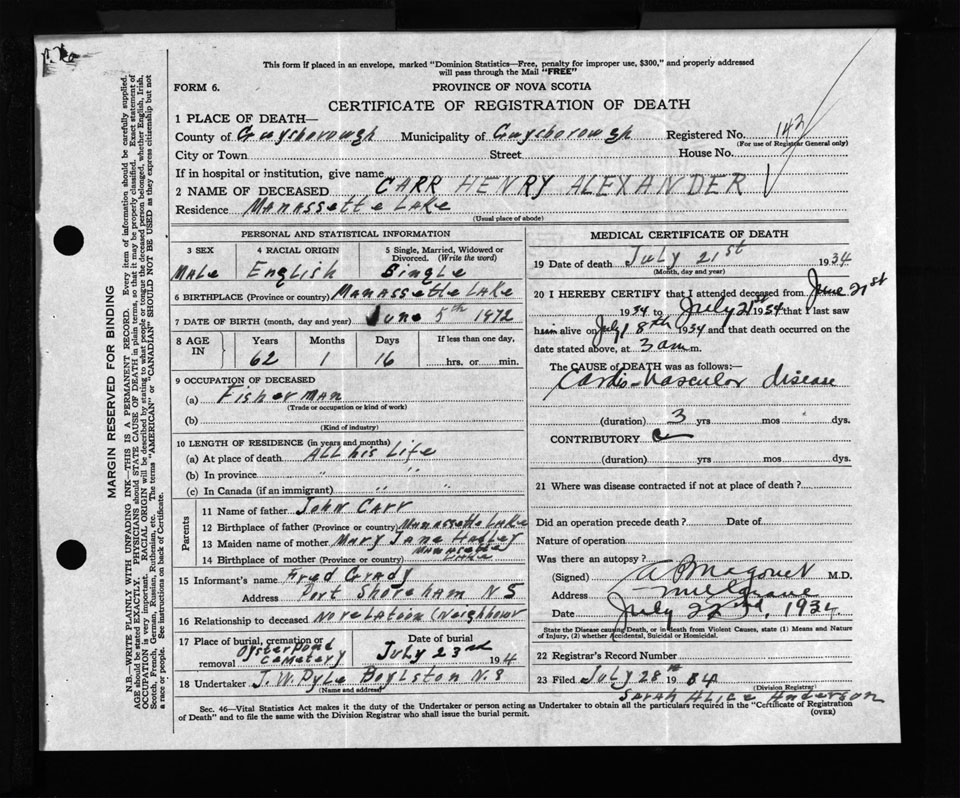 This form if placed in an envelope, marked "Dominion Statistics—Free, penalty for improper use, $300," and properly addressed
will pass through the Mail "FREE"
FORM 6.
PROVINCE OF NOVA SCOTIA
CERTIFICATE OF REGISTRATION OF DEATH
1 PLACE OF DEATH—
County of Guysborough Municipality of Guysborough Registered No. 142
(For use of Registrar General only)
City or Town Street House No.
If in hospital or institution, give name
2 NAME OF DECEASED CARR HENRY ALEXANDER
Residence Manassette Lake
(Usual place of abode)
PERSONAL AND STATISTICAL INFORMATION
3 SEX 4 RACIAL ORIGIN 5 Single, Married, Widowed or Divorced. (Write the word)
Male English Single
6 BIRTHPLACE (Province or country) Manassette Lake
7 DATE OF BIRTH (month, day and year) June 5th 1872
8 AGE IN Years Months Days If less than one day,
62 1 16 hrs. or min.
9 OCCUPATION OF DECEASED
(a) Fisherman
(Trade or occupation or kind of work)
(b)
(Kind of industry)
10 LENGTH OF RESIDENCE (in years and months)
(a) At place of death All his Life
(b) In province " "
(c) In Canada (if an immigrant) " "
Parents
11 Name of father John Carr
12 Birthplace of father (Province or country) Manassette Lake
13 Maiden name of mother Mary Jane Hadley
14 Birthplace of mother (Province or country) Manassette Lake
15 Informant's name Fred Grady
Address Port Shoreham N S
16 Relationship to deceased No relation (Neighbour
17 Place of burial, cremation or removal Oyster Pond Cemetery
Date of burial July 23rd 19 4
18 Undertaker J. W. Pyle Boylston N.S
(Name and address)
MEDICAL CERTIFICATE OF DEATH
19 Date of death July 21st 1934
(Month, day and year)
20 I HEREBY CERTIFY that I attended deceased from June 21st
1934 to July 21st 1934 that I last saw
him alive on July 18th 1934 and that death occurred on
date stated above, at 3 am m.
The CAUSE of DEATH was as follows:—
Cardio-Vascular disease
(duration) 3 yrs mos dys.
CONTRIBUTORY
(duration) yrs mos dys.
21 Where was disease contracted if not at place of death?
Did an operation precede death? Date of
Nature of operation
Was there an autopsy?
(Signed) M.D.
Address
Date July 22nd, 1934
State the Disease causing Death, or in death from Violent Causes, state (1) Means and Nature
of Injury, (2) whether Accidental, Suicidal or Homicidal.
22 Registrar's Record Number
23 Filed July 28th 1934
(Division Registrar)
Sarah Alice Anderson
Sec. 46—Vital Statistics Act makes it the duty of the Undertaker or person acting as Undertaker to obtain all the particulars required in the "Certificate of Registration
of Death" and to file the same with the Division Registrar who shall issue the burial permit.
(OVER)
MARGIN RESERVED FOR BINDING
N.B.—WRITE PLAINLY WITH UNFADING INK—THIS IS A PERMANENT RECORD. Every item of information should be carefully supplied.
AGE should be stated EXACTLY. PHYSICIANS should STATE CAUSE OF DEATH in plain terms, so that it may be properly classified. Exact statement of
OCCUPATION is very important. RACIAL ORIGIN will be described by stating to what people or tongue the deceased person belonged, whether English, Irish,
Scotch, French, German, Russian, Ruthenian, etc. The terms "AMERICAN" or "CANADIAN" SHOULD NOT BE USED as they express citizenship but not
a race or people. See instructions on back of Certificate.